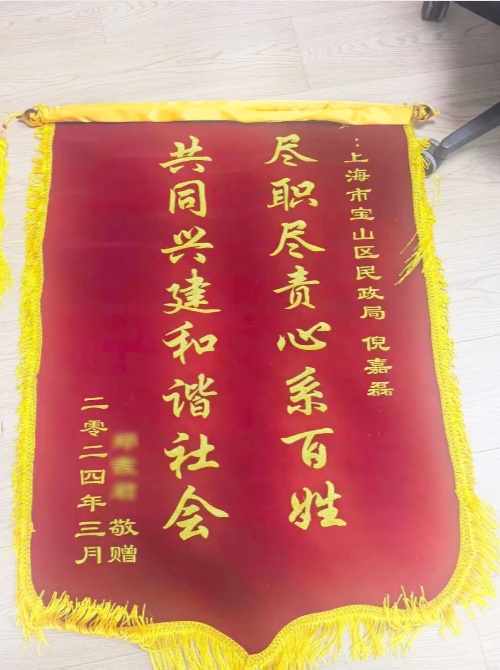 ：上海市宝山区民政局 倪嘉磊
尽职尽责心系百姓
共同兴建和谐社会
敬赠
二零二四年三月